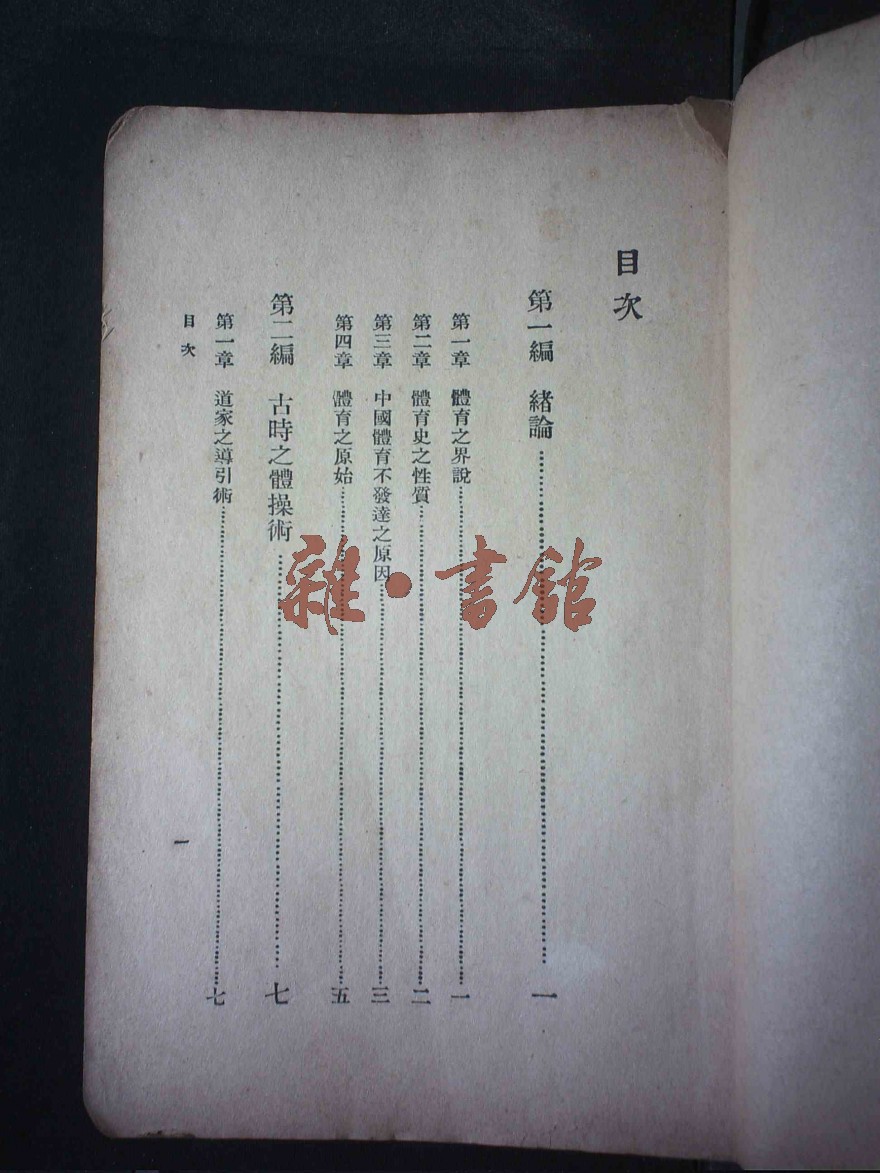 目次
第一編　緒論……一
第一章　體育之界說……一
第二章　體育史之性質……二
第三章　中國體育不發達之原因……三
第四章　體育之原始……五
第二編　古時之體操術……七
第一章　道家之導引術……七
目次　一
雜·書館